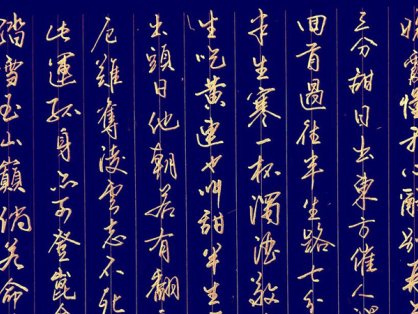 三分甜日出東方催人
回首過往半生路七分
半生寒一杯濁酒敬
生吃黄連也叫甜半生
出頭日他朝若有翻
厄難奪凌雲志不死
此運孤身亦可登崑
踏雪至山巔倘若命